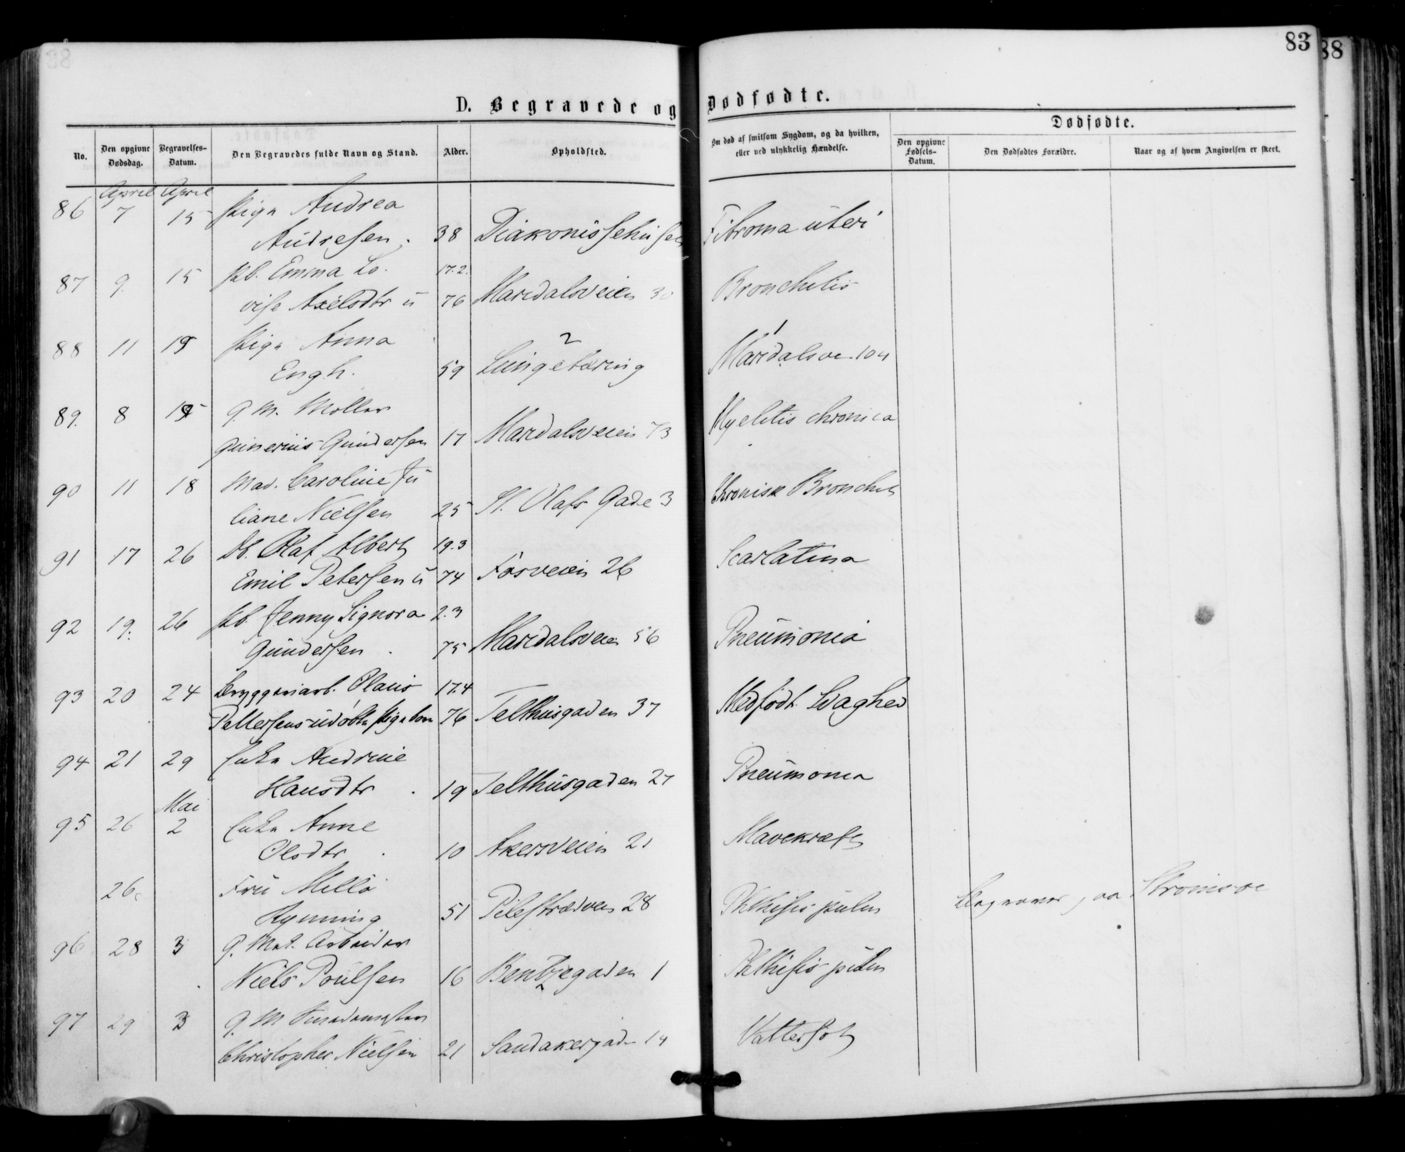 83
88
D. Begravede og Dødfødte.
No.
Den opgivne Dødsdag.
Begravelses-Datum.
Den Begravedes fulde Navn og Stand.
Alder.
Opholdsted.
Om død af smitsom Sygdom, og da hvilken, eller ved ulykkelig Hændelse.
Dødfødte.
Den opgivne Fødsels-Datum.
Den Dødfødtes Forældre.
Naar og af hvem Angivelsen er skeet.
April April
86 7 15 Pige Andrea
Andresen. 38 Diakonissehuset Fibroma uteri
87 9. 15 Pb. Emma Lo- 17.2.
vise Axelsdtr u 76 Maridalsveien Bronchitis
88 11 15 Pige Anna 2 1
Engh. 59 Lungetæring Maridalsve 104
89. 8 15 g. M. Møller
Gunerius Gundersen 17 Maridalsveien 73 Myelitis chronica
90 11 18 Mad. Caroline Ju
liane Nielsen 25 St. Olafs Gade 3 Chronisk Bronchit
91 17 26 Db. Olaf Albert 19.3
Emil Petersen u 74 Fosveien 26 Scarlatina
92 19. 26 Pb. Jenny Signora 2.3
Gundersen 75 Maridalsveien 56 Pneumonia
93 20 24 Bryggeriarb. Olaus 17.4
Pettersens udøbte Pigebarn 76 Telthusgaden 37 Medfødt Svaghed
94 21 29 Enke Andrine
Hansdtr 19 Telthusgaden 27 Pneumonia
Mai
95 26 2 Enke Anne
Olsdtr 10 Akersveien 21 Mavekræft
26. Fru Milla
Rynning 51 Pilestrædet 28 Phthisis pulm Begraves paa Strømsøe
96 28 3 g. Mat. Arbeider
Niels Poulsen 16 Bentzegaden 1 Phthisis pulm
97 29 3 g. M
Christopher Nielsen 21 Sandakergade 14 Vattersot